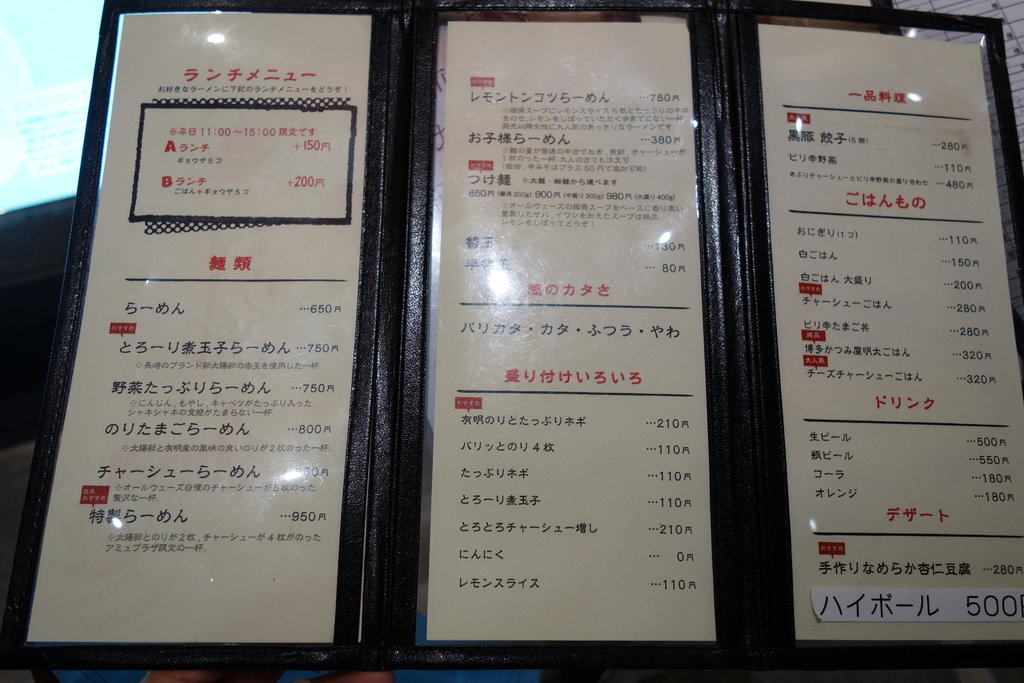 ランチメニュー
お好きなラーメンに下記のランチメニューをどうぞ！
※平日 11:00～15:00 限定です
Aランチ +150円
ギョウザ5コ
Bランチ +200円
ごはん+ギョウザ5コ
麺類
らーめん …650円
おすすめ
とろーり煮玉子らーめん …750円
※長崎のブランド卵太陽卵の煮玉を使用した一杯。
野菜たっぷりらーめん …750円
※にんじん、もやし、キャベツがたっぷり入った
シャキシャキの食感がたまらない一杯。
のりたまごらーめん …800円
※太陽卵と有明産の風味の良いのりが2枚のった一杯。
チャーシューらーめん
※オールウェーズ自慢のチャーシューが5枚のった
贅沢な一杯。
店長おすすめ
特製らーめん …950円
※太陽卵とのりが2枚、チャーシューが4枚がのった
アミュプラザ限定の一杯。
おすすめ
レモントンコツらーめん …750円
※豚骨スープにレモンスライス5枚とたっぷりのネギ
をのせ、レモンをしぼっていただく今までにない一杯
発売以降女性に大人気のあっさりなラーメンです。
お子様らーめん …380円
※麺の量が普通の半分でねぎ、海苔、チャーシューが
1枚のった一杯 大人の方でも注文可
おすすめ
つけ麺 ※太麺・細麺から選べます
850円(普通 200g) 900円(中盛り 300g) 980円(大盛り 400g)
※オールウェーズの豚骨スープをベースに香り高い
薫製したサバ、イワシを加えたスープは絶品
レモンをしぼってどうぞ！
替玉 …130円
半替玉 … 80円
麺のカタさ
バリカタ・カタ・ふつう・やわ
盛り付けいろいろ
おすすめ
有明のりとたっぷりネギ …210円
パリッとのり4枚 …110円
たっぷりネギ …110円
とろーり煮玉子 …110円
とろとろチャーシュー増し …210円
にんにく … 0円
レモンスライス …110円
一品料理
大人気
黒豚 餃子(5個) …280円
ピリ辛野菜 …110円
あぶりチャーシューとピリ辛野菜の盛り合わせ …480円
ごはんもの
おにぎり(1コ) …110円
白ごはん …150円
白ごはん 大盛り …200円
おすすめ
チャーシューごはん …280円
ピリ辛たまご丼 …280円
絶品
博多かつみ屋明太ごはん …320円
大人気
チーズチャーシューごはん …320円
ドリンク
生ビール …500円
瓶ビール …550円
コーラ …180円
オレンジ …180円
デザート
おすすめ
手作りなめらか杏仁豆腐 …280円
ハイボール 500円